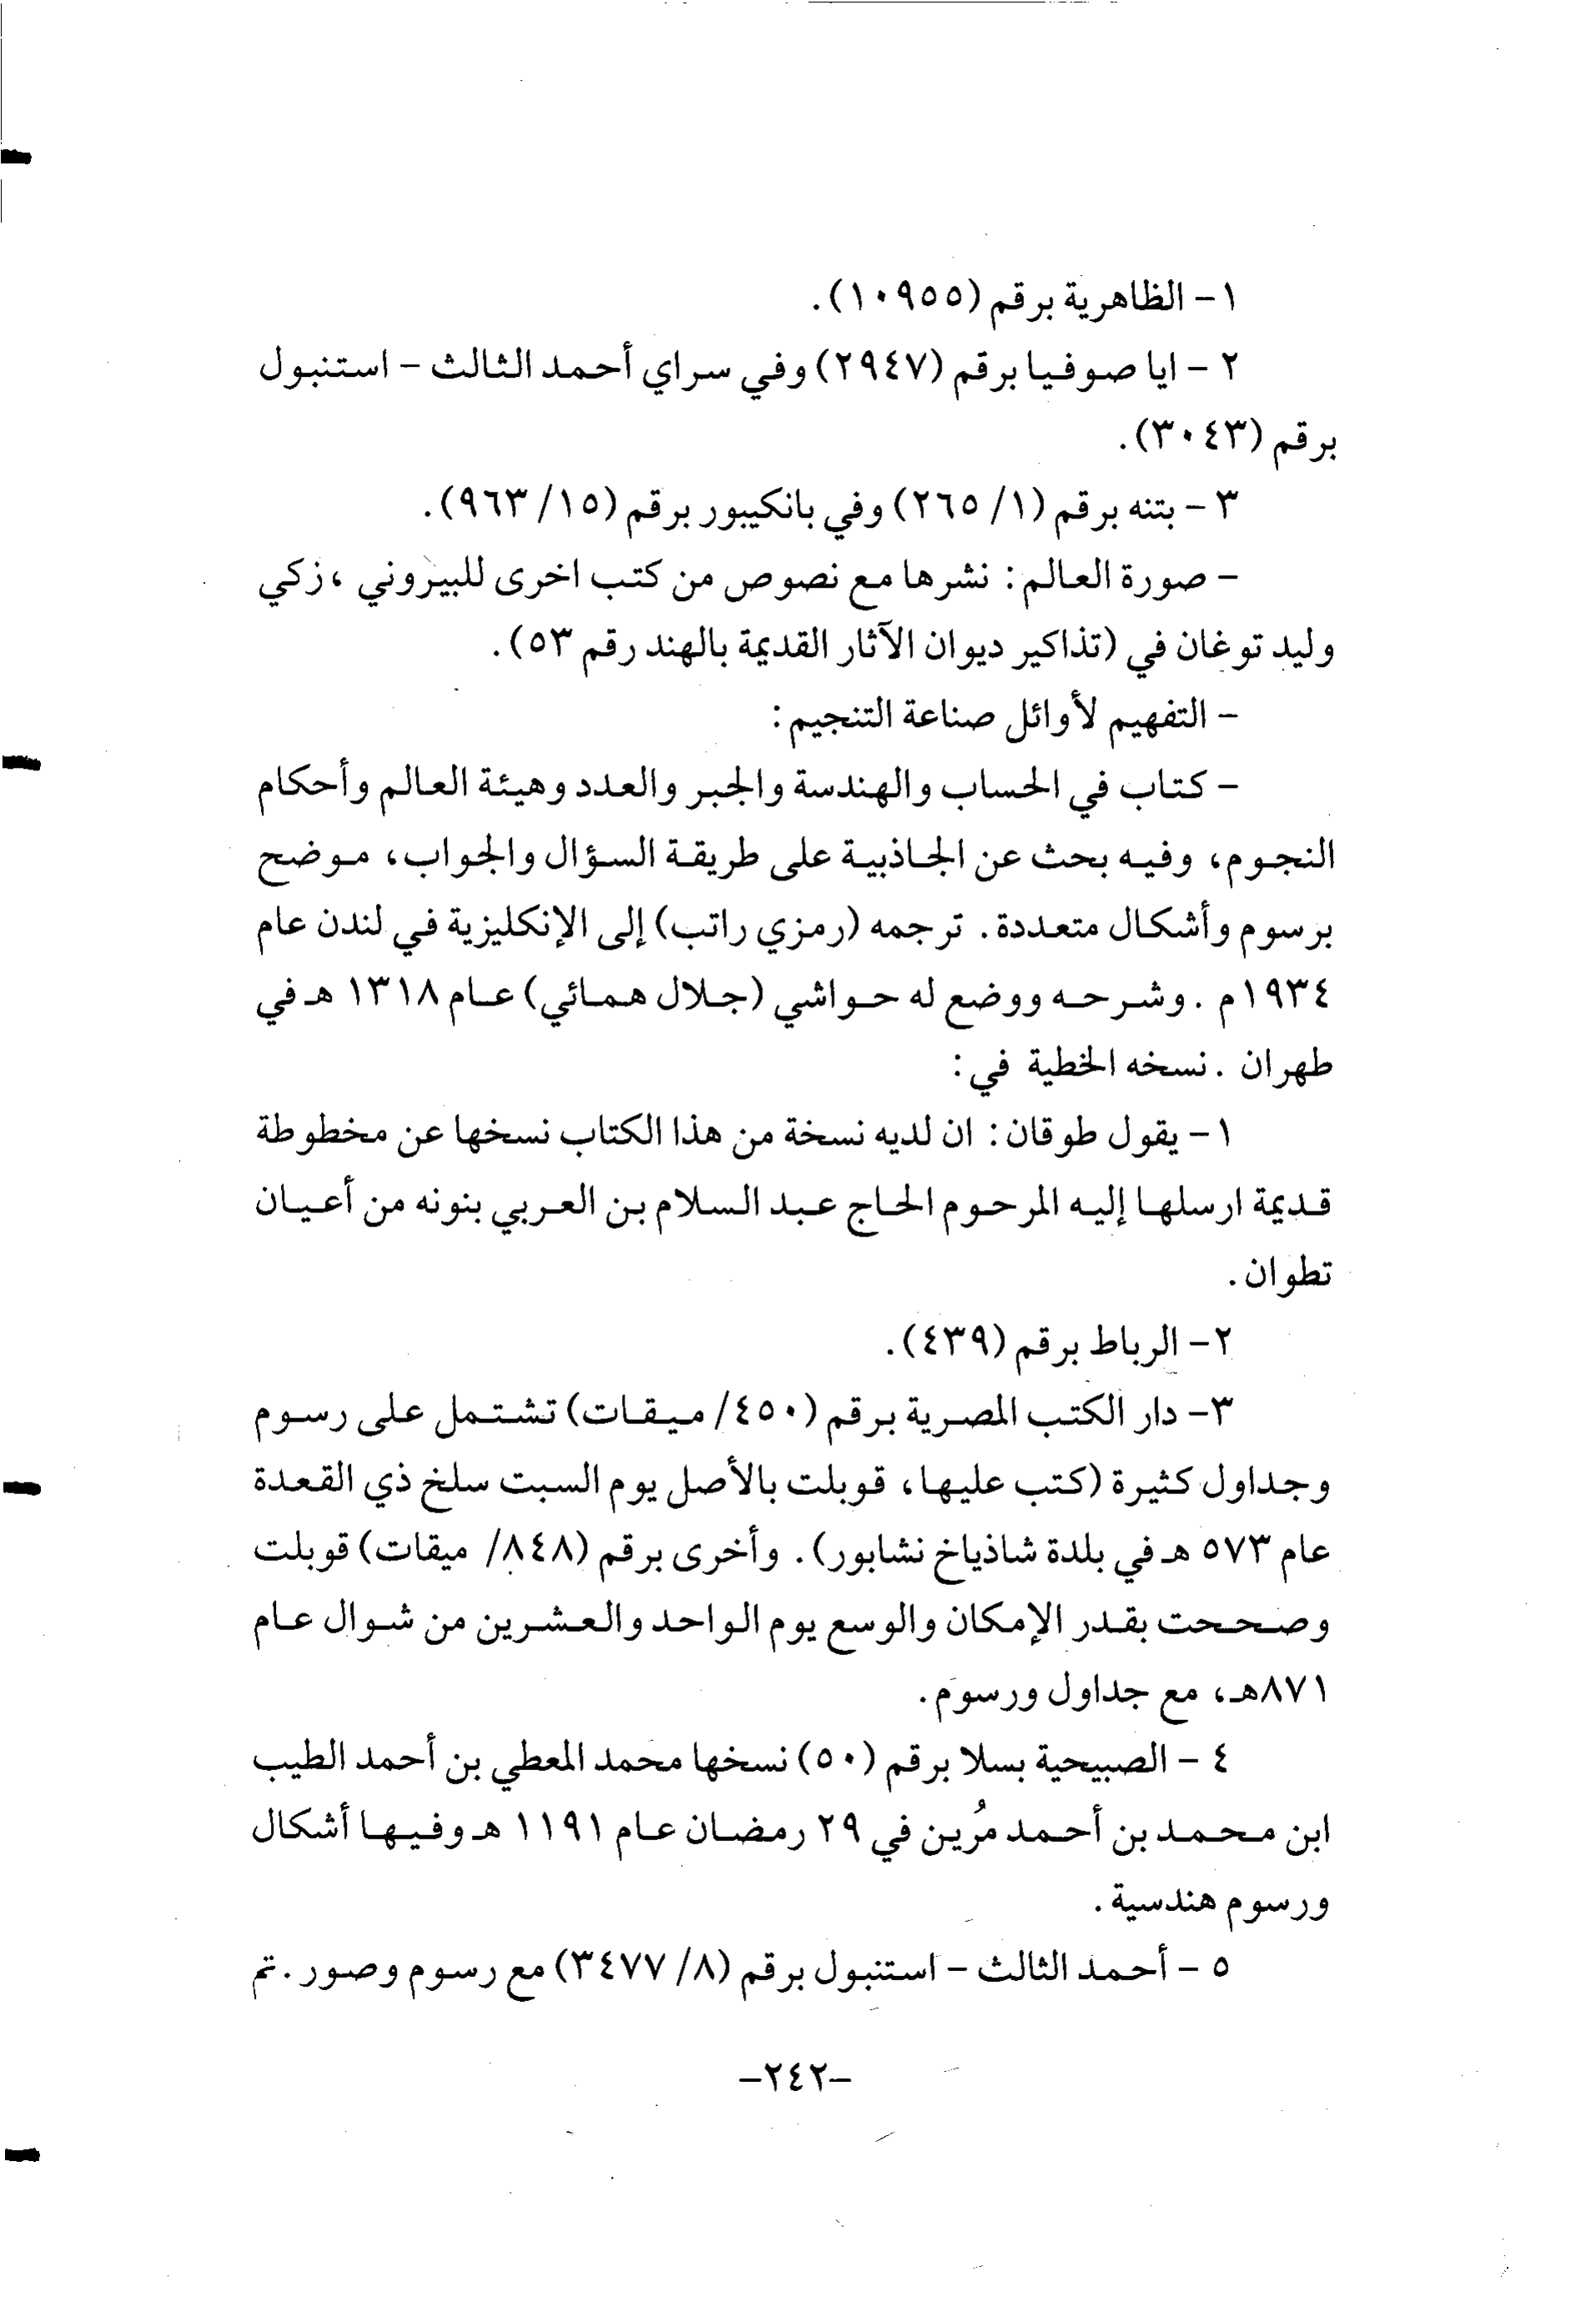 ١- الظاهرية برقم (١٠٩٥٥).
٢ - ايا صوفيا برقم (٢٩٤٧) وفي سراي أحمد الثالث - استنبول
برقم (٣٠٤٣).
٣ - بتنه برقم (١/ ٢٦٥) وفي بانكيبور برقم (١٥/ ٩٦٣).
- صورة العالم: نشرها مع نصوص من كتب اخرى للبيروني ، زكي
وليد توغان في (تذاكير ديوان الآثار القديمة بالهند رقم ٥٣).
- التفهيم لأوائل صناعة التنجيم:
- كتاب في الحساب والهندسة والجبر والعدد وهيئة العالم وأحكام
النجوم، وفيه بحث عن الجاذبية على طريقة السؤال والجواب، موضح
برسوم وأشكال متعددة. ترجمه (رمزي راتب) إلى الإنكليزية في لندن عام
١٩٣٤م . وشرحه ووضع له حواشي (جلال همائي) عام ١٣١٨ هـ في
طهران . نسخه الخطية في:
١- يقول طوقان: ان لديه نسخة من هذا الكتاب نسخها عن مخطوطة
قديمة ارسلها إليه المرحوم الحاج عبد السلام بن العربي بنونه من أعيان
تطوان.
٢- الرباط برقم (٤٣٩).
٣- دار الكتب المصرية برقم (٤٥٠/ ميقات) تشتمل على رسوم
وجداول كثيرة (كتب عليها، قوبلت بالأصل يوم السبت سلخ ذي القعدة
عام ٥٧٣ هـ في بلدة شاذياخ نشابور). وأخرى برقم (٨٤٨/ ميقات) قوبلت
وصححت بقدر الإمكان والوسع يوم الواحد والعشرين من شوال عام
٨٧١هـ، مع جداول ورسوم.
٤ - الصبيحية بسلا برقم (٥٠) نسخها محمد المعطي بن أحمد الطيب
ابن محمد بن أحمد مُرين في ٢٩ رمضان عام ١١٩١ هـ وفيها أشكال
ورسوم هندسية.
٥ - أحمد الثالث - استنبول برقم (٨/ ٣٤٧٧) مع رسوم وصور. تم
-٢٤٢-